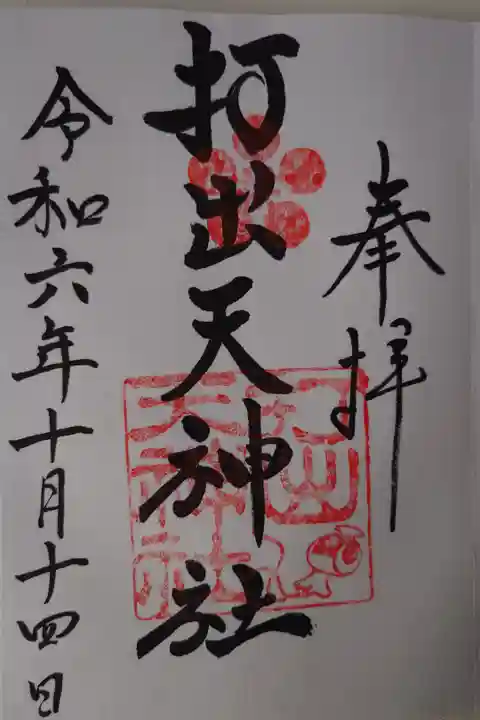 奉拝
打出天神社
令和六年十月十四日